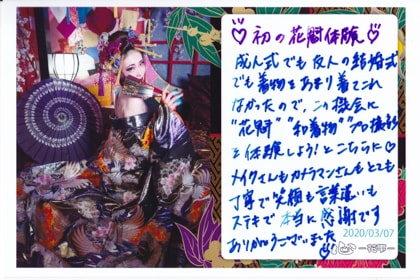 ♡初の花魁体験♡
成人式でも友人の結婚式
でも着物をあまり着てこれ
なかったので、この機会に
"花魁" "和着物" プロ撮影
を体験しよう!とこちらに♡
メイクさんもカメラマンさんもとても
丁寧で笑顔も言葉遣いも
ステキで本当に感謝です
ありがとうございました
2020/03/07